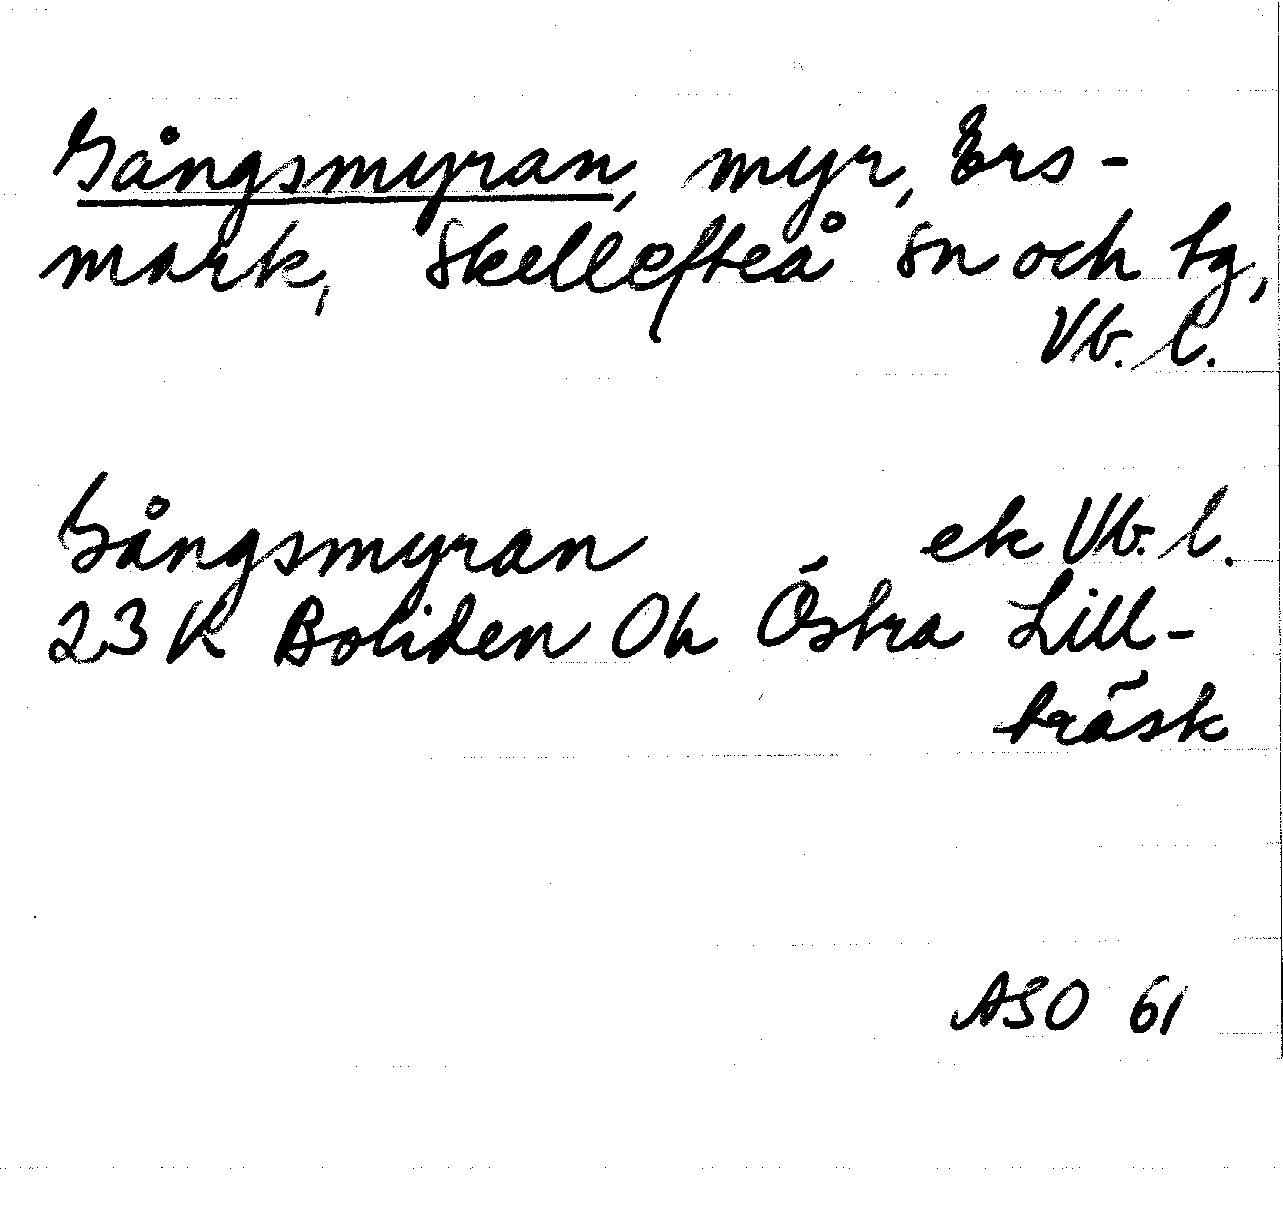 Gångsmyran, myr, Ers-
mark, Skellefteå sn och tg,
Vb. l.
Gångsmyran ek Vb. l.
23 K Boliden Oh Östra Lill-
träsk
ASO 61